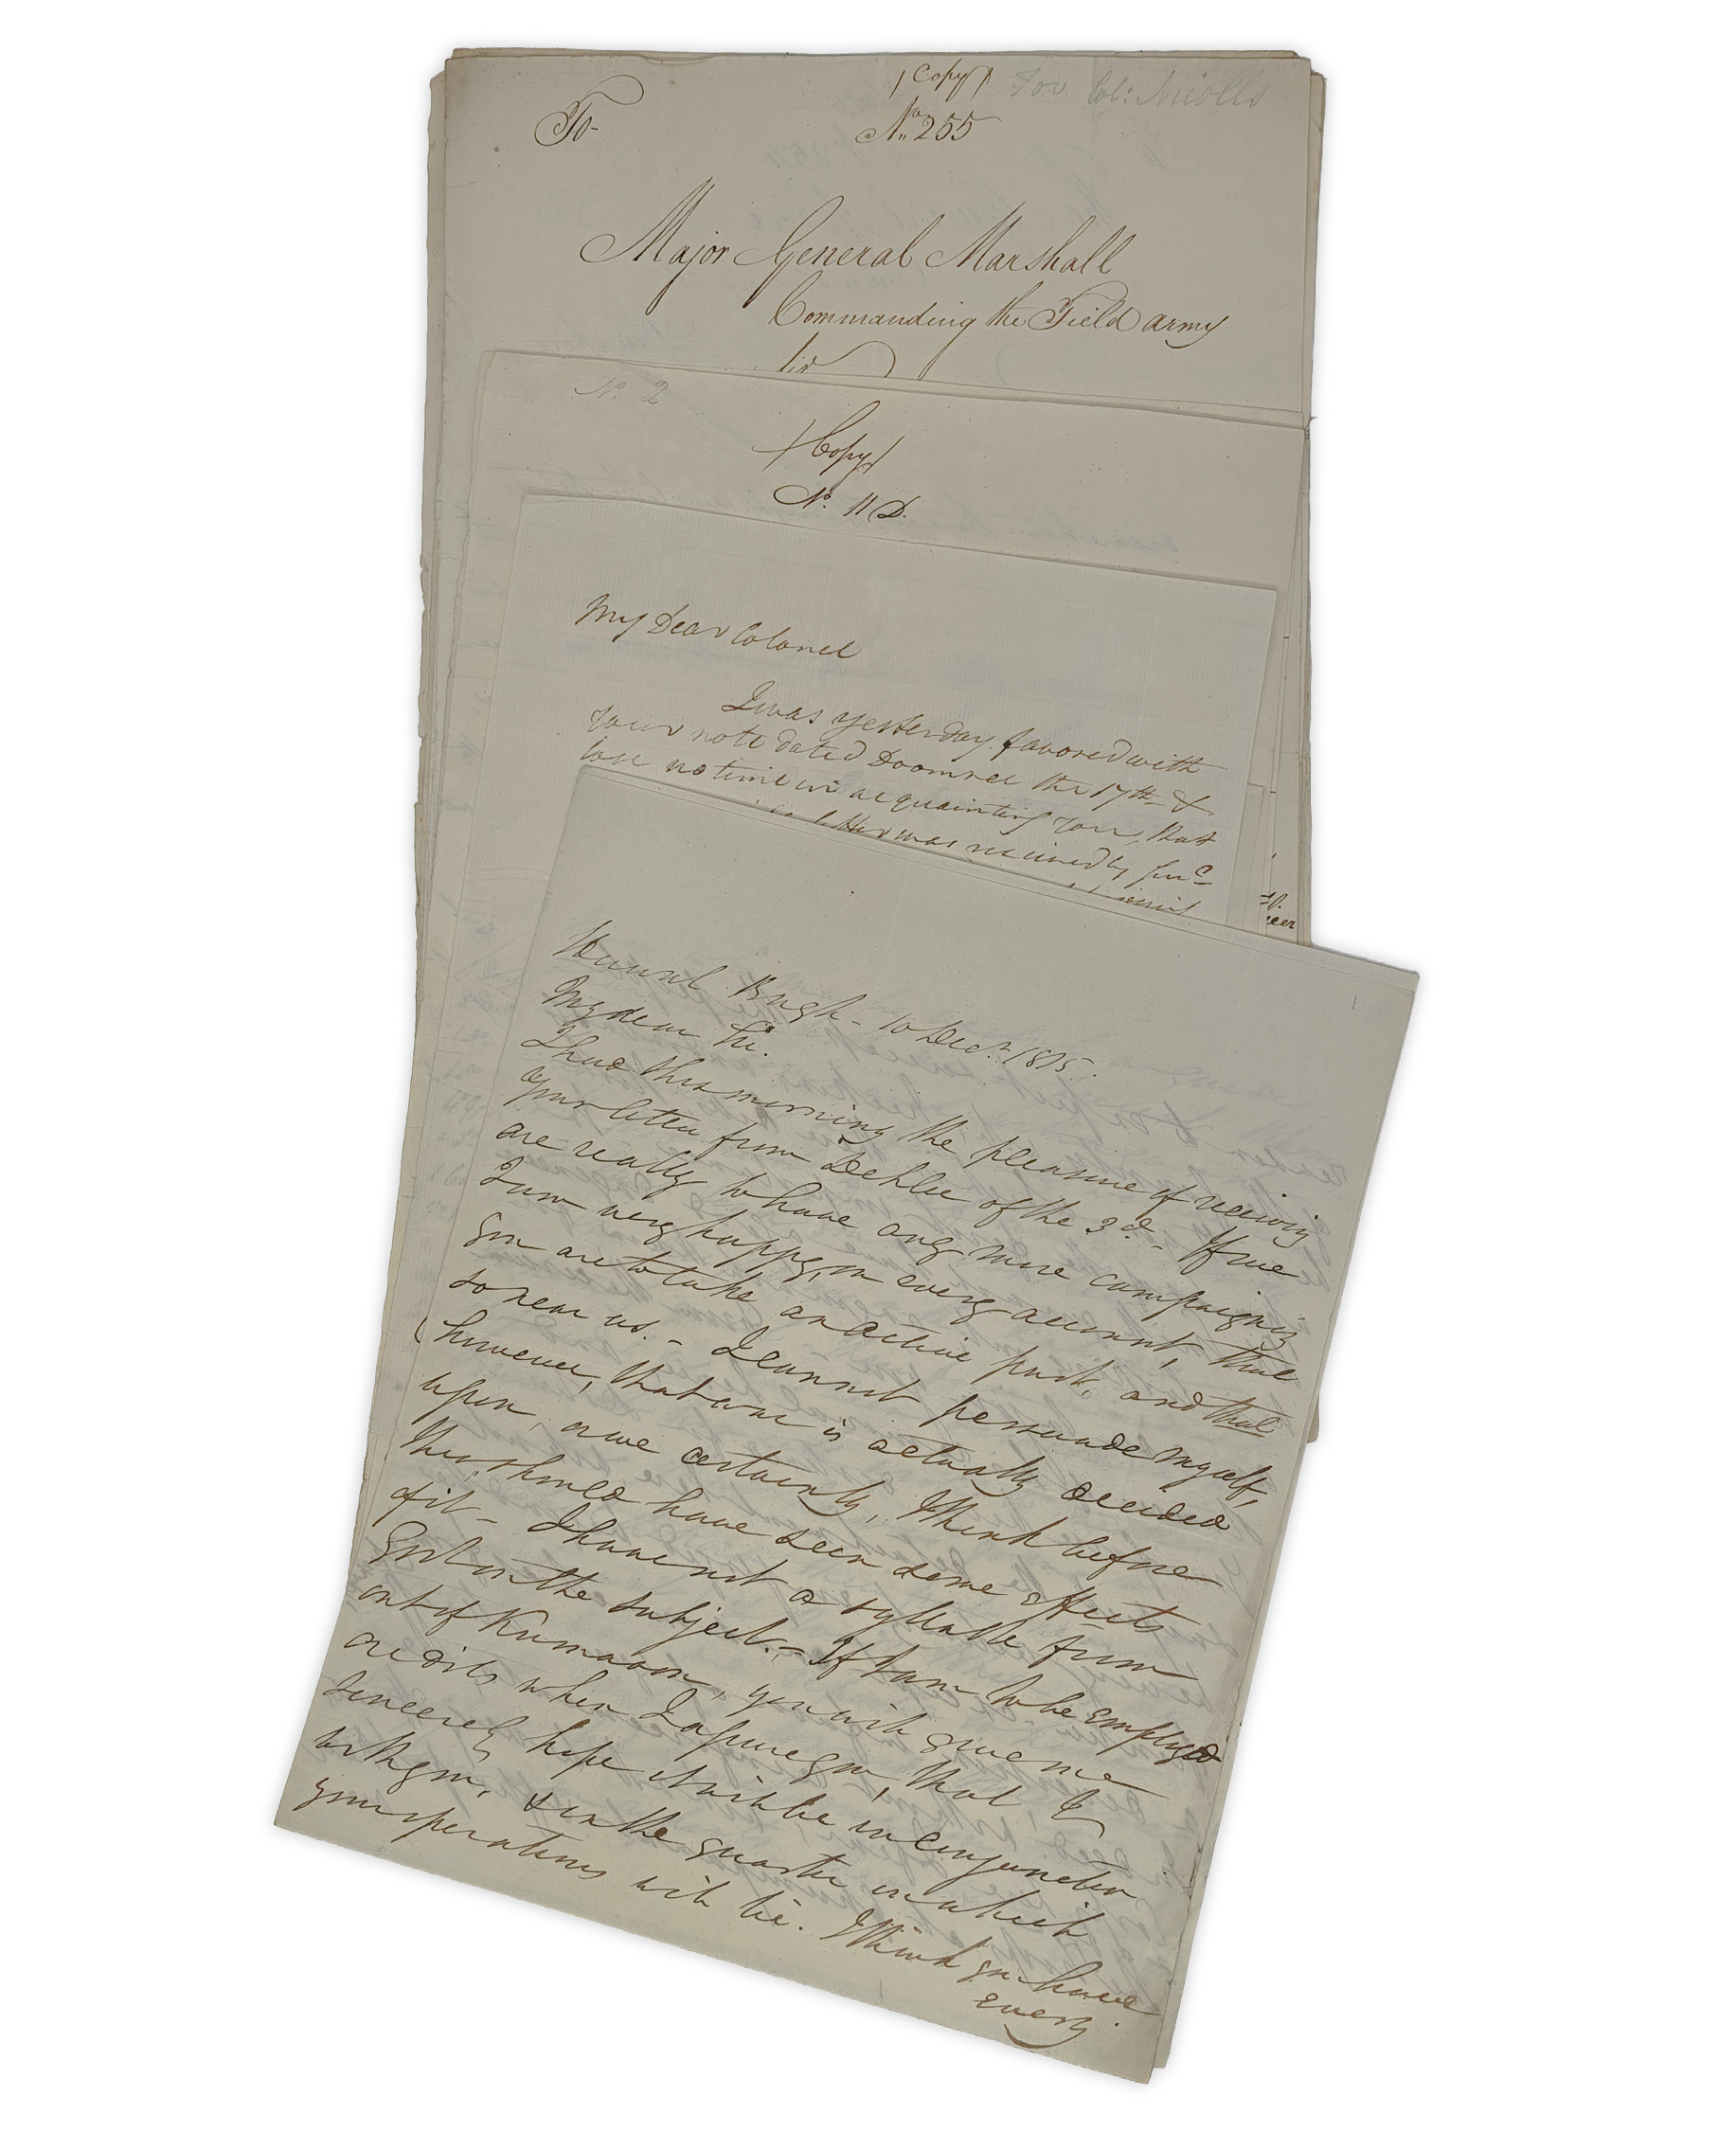 (Copy) For Col: Nicolls
To
No. 255
Major General Marshall
Commanding the Field army
Sir
No. 2
(Copy)
No. 11 D.
My Dear Colonel
I was yesterday favored with
your note dated the 17th &
lose no time in acquainting you, that
letter was received by
10 Decr. 1815.
My dear Sir.
I had this morning the pleasure of receiving
your letter from Dehlee of the 3d. - If we
are really to have any more campaigning
I am very happy, on every account, that
you are to take an active part, and that
so near us. - I cannot persuade myself,
however, that war is actually decided
upon, nor we certainly, I think before
this should have seen some effects
of it - I have not a syllable from
Govt on the subject. - If I am to be employed
out of Kumaon, you will give me
credits when I assure you, that I
sincerely hope it will be in conjunction
with you, & in the quarter in which
your operations will lie. I think you have
every